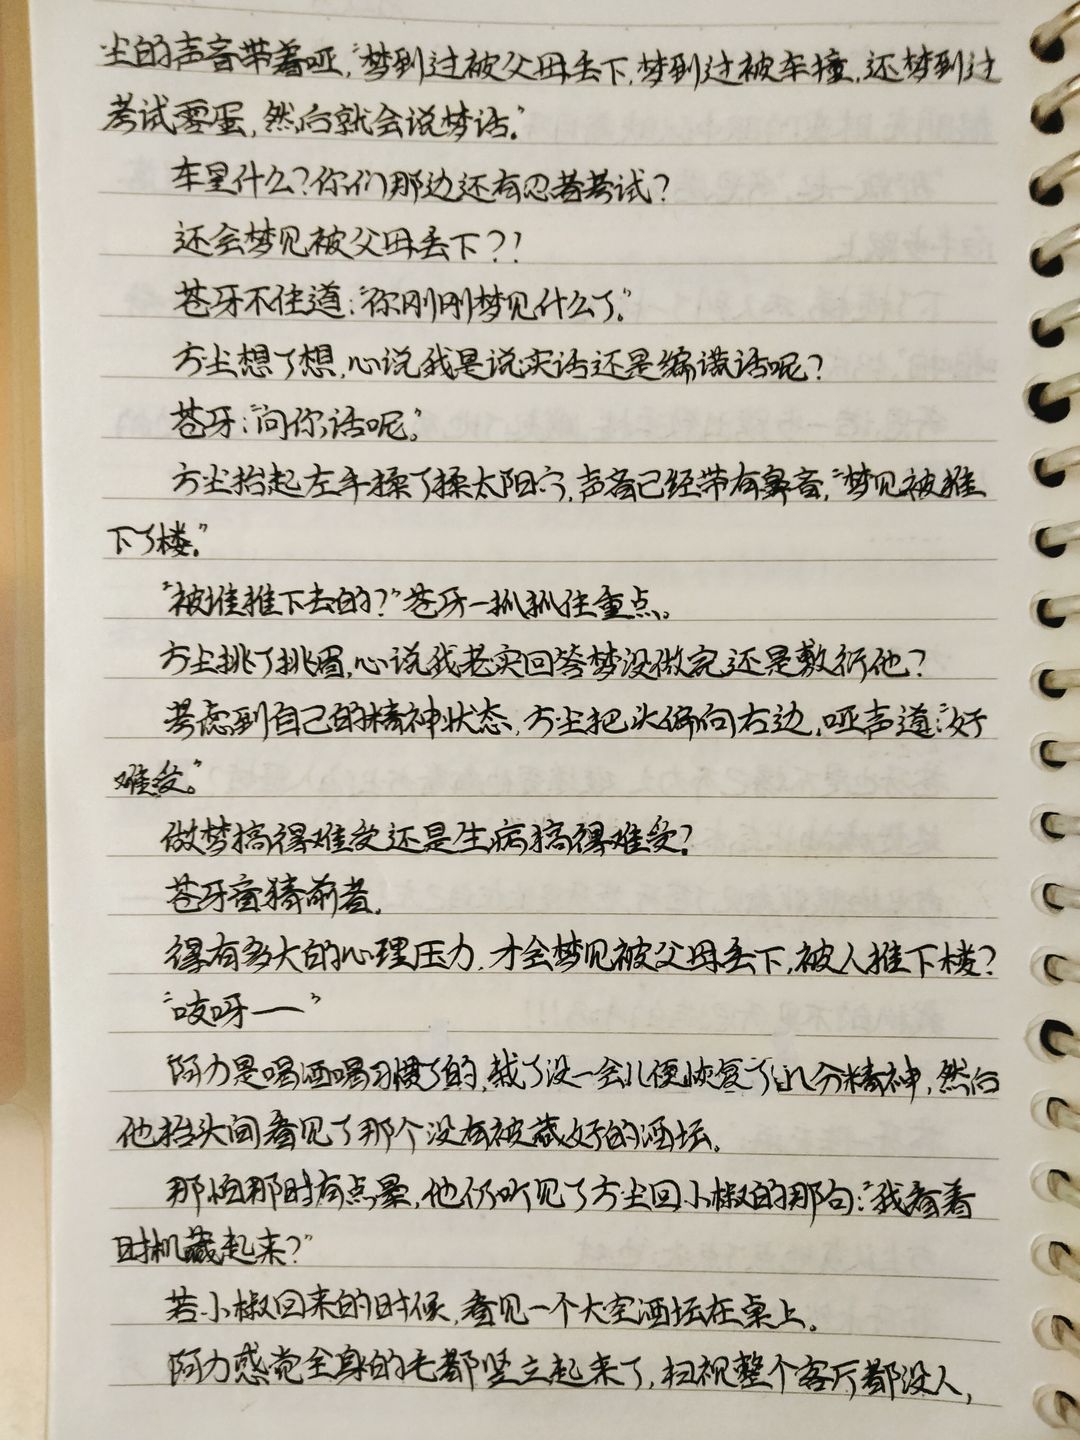 尘的声音带着哑，“梦到过被父母丢下，梦到过被车撞，还梦到过
考试零蛋，然后就会说梦话。”
车里什么？你们那边还有忍者考试？
还会梦见被父母丢下？！
苍牙不住道：“你刚刚梦见什么了。”
方尘想了想，心说我是说实话还是编谎话呢？
苍牙：“问你话呢。”
方尘抬起左手揉了揉太阳穴，声音已经带有鼻音，“梦见被推
下了楼。”
“被谁推下去的？”苍牙一抓抓住重点。
方尘挑了挑眉，心说我老实回答梦没做完还是敷衍他？
考虑到自己的精神状态，方尘把头偏向右边，哑声道：“好
难受。”
做梦搞得难受还是生病搞得难受？
苍牙音猜前者。
得有多大的心理压力，才会梦见被父母丢下，被人推下楼？
“吱呀——”
阿力是喝酒喝习惯了的，栽了没一会儿便恢复了几分精神，然后
他抬头间看见了那个没有被藏好的酒坛。
那怕那时有点晕，他仍听见了方尘回小椒的那句：“我看着
时机藏起来？”
若小椒回来的时候，看见一个大空酒坛在桌上。
阿力感觉全身的毛都竖立起来了，扫视整个客厅都没人，